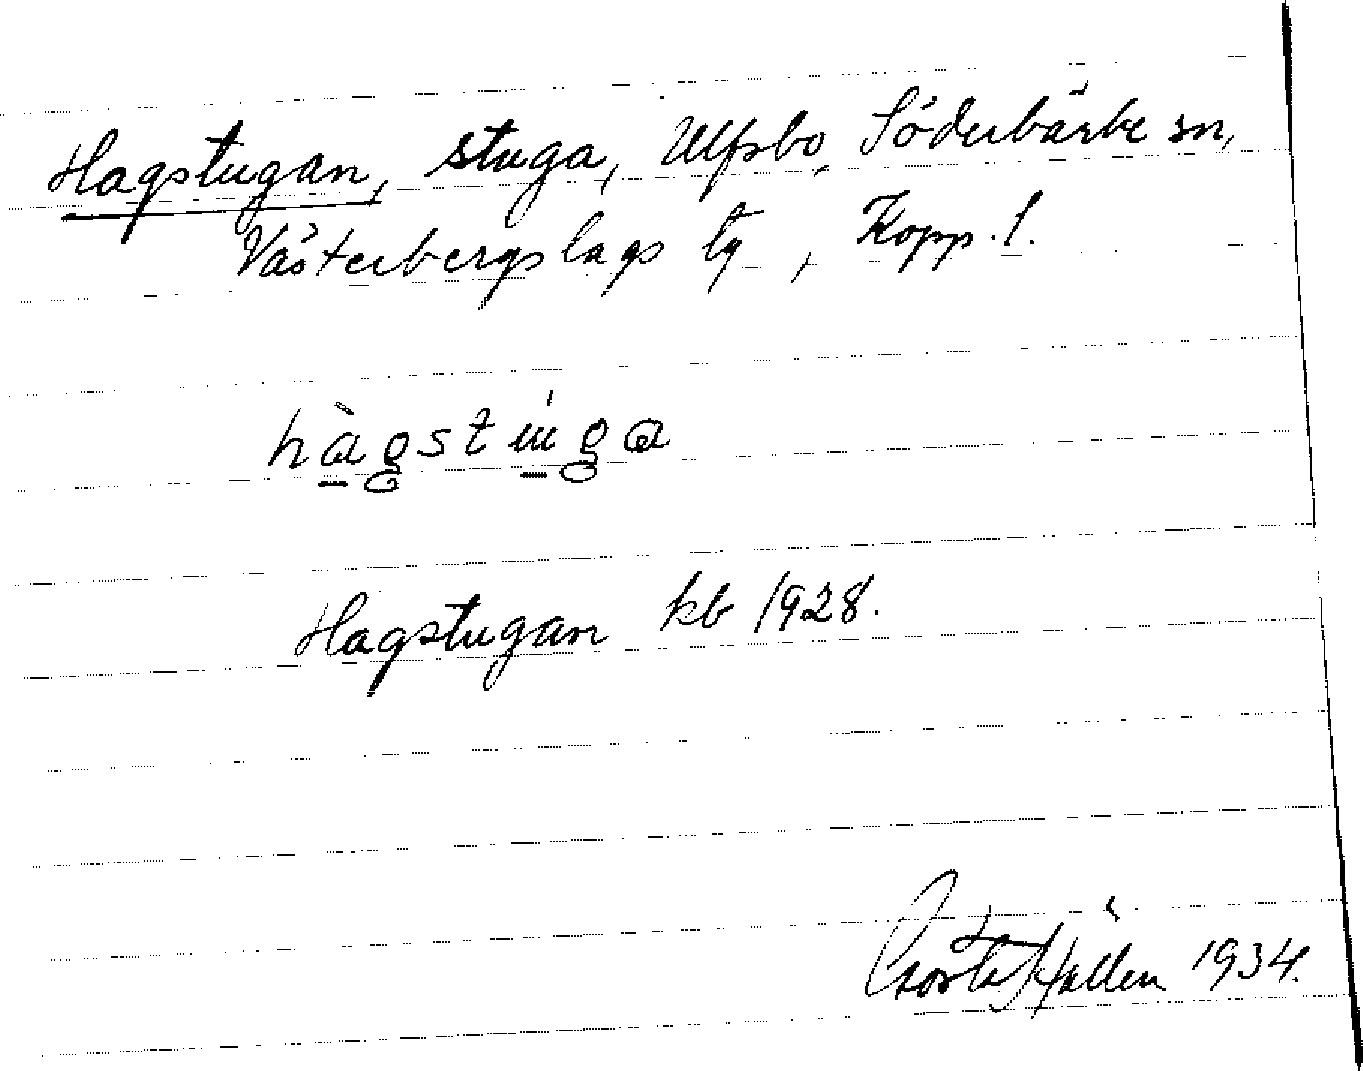 Hagstugan, stuga, Ulfsbo, Söderbärke sn,
Västerbergslags tg, Kopp. l.
hàgstu̇ga
Hagstugan kb 1928.
Gösta Hällen 1934.